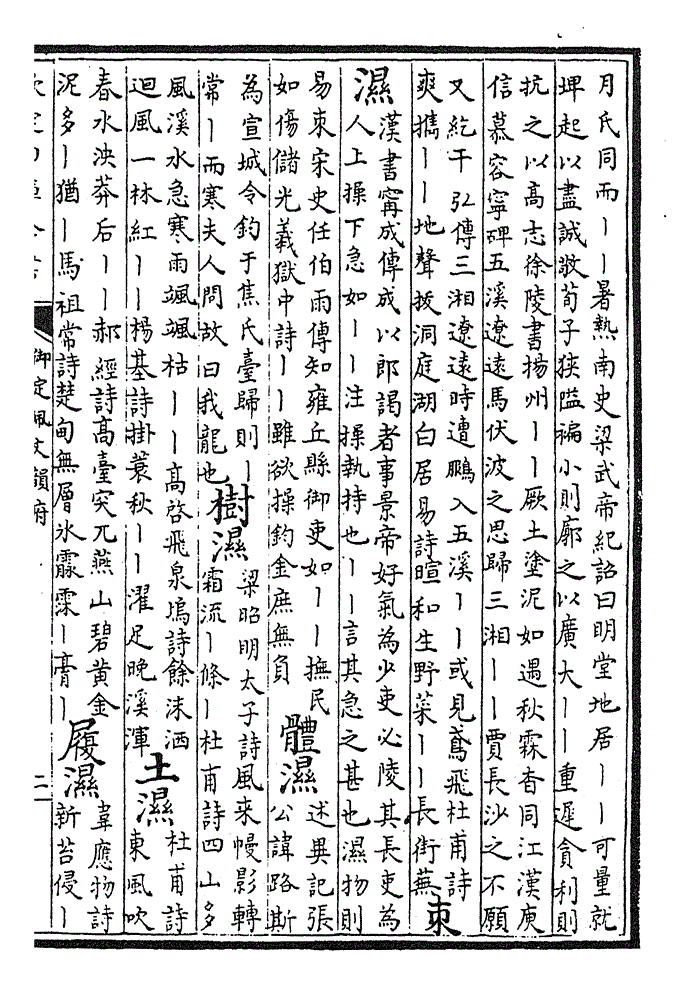 月氏同而丨丨暑熱南史梁武帝紀詔曰明堂地居丨丨可量就
埤起以盡誠敬荀子狹隘褊小則廓之以廣大丨丨重遲貪利則
抗之以高志徐陵書揚州丨丨厥土塗泥如遇秋霖杳同江漢庾
信慕容寧碑五溪遼遠馬伏波之思歸三湘丨丨賈長沙之不願
又紇干弘傳三湘遼遠時遭鵩入五溪丨丨或見鳶飛杜甫詩
爽攜丨丨地聲拔洞庭湖白居易詩暄和生野菜丨丨長街蕪
束濕
漢書甯成傳成以郎謁者事景帝好氣為少吏必陵其長吏為
人上操下急如丨丨注操執持也丨丨言其急之甚也濕物則
易束宋史任伯雨傳知雍丘縣御吏如丨丨撫民
如傷儲光羲獄中詩丨丨雖欲操鈞金庶無負
體濕
述異記張
公諱路斯
為宣城令釣于焦氏臺歸則丨
常丨而寒夫人問故曰我龍也
樹濕
梁昭明太子詩風来幔影轉
霜流丨條丨杜甫詩四山多
風溪水急寒雨颯颯枯丨丨高啓飛泉塢詩餘沫洒
迴風一林紅丨丨楊基詩掛蓑秋丨丨濯足晚溪渾
土濕
杜甫詩
東風吹
春水泱莽后丨丨郝經詩髙臺突兀燕山碧黄金
泥多丨猶丨馬祖常詩楚甸無層氷霢霂丨膏丨
履濕
韋應物詩
新苔侵丨
欽定四庫全書
御定佩文韻府
二